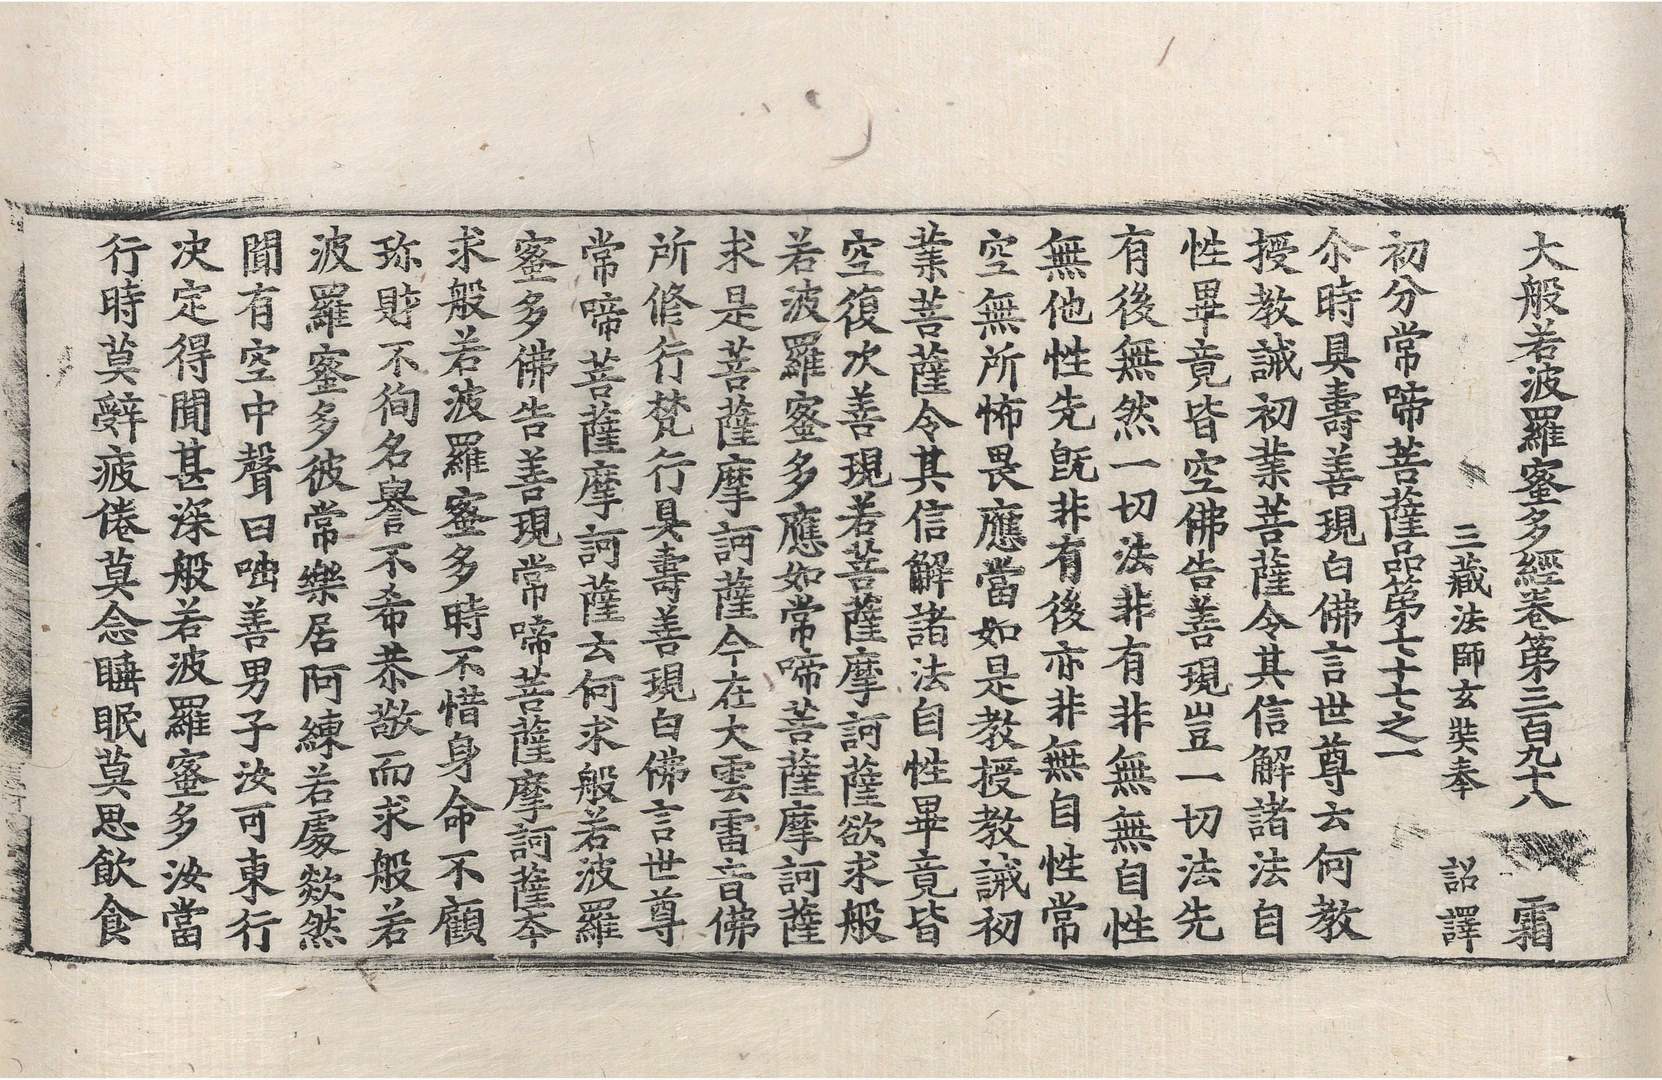 大般若波羅蜜多經卷第三百九十八　霜
三藏法師玄奘奉　詔譯
初分常啼菩薩品第七十七之一
尒時具壽善現白佛言世尊云何教
授教誡初業菩薩令其信解諸法自
性畢竟皆空佛告善現豈一切法先
有後無然一切法非有非無無自性
無他性先旣非有後亦非無自性常
空無所怖畏應當如是教授教誡初
業菩薩令其信解諸法自性畢竟皆
空復次善現若菩薩摩訶薩欲求般
若波羅蜜多應如常啼菩薩摩訶薩
求是菩薩摩訶薩今在大雲雷音佛
所修行梵行具壽善現白佛言世尊
常啼菩薩摩訶薩云何求般若波羅
蜜多佛告善現常啼菩薩摩訶薩夲
求般若波羅蜜多時不惜身命不顧
珎財不徇名譽不希恭敬而求般若
波羅蜜多彼常樂居阿練若處欻然
聞有空中聲曰咄善男子汝可東行
决定得聞甚深般若波羅蜜多汝當
行時莫辭疲倦莫念睡眠莫思飮食